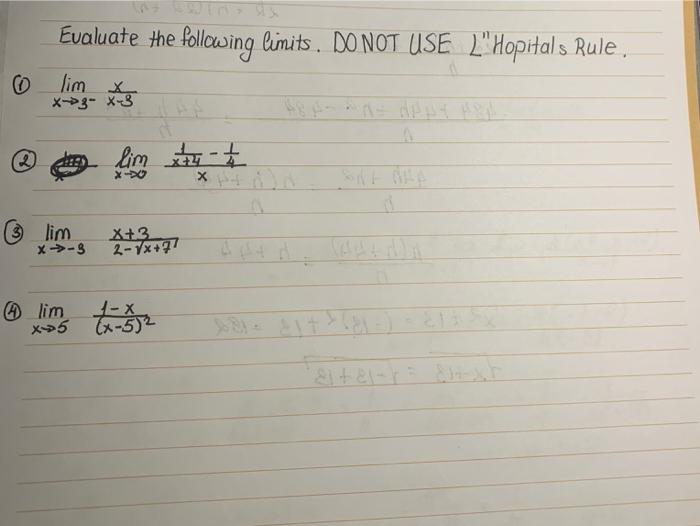 Evaluate the following limits. DO NOT USE L"Hopitals Rule.
① lim x→3- x/x-3
② lim x→0 1/x+4 - 1/4 / x
③ lim x→-3 x+3 / 2-√x+7
④ lim x→5 1-x / (x-5)²